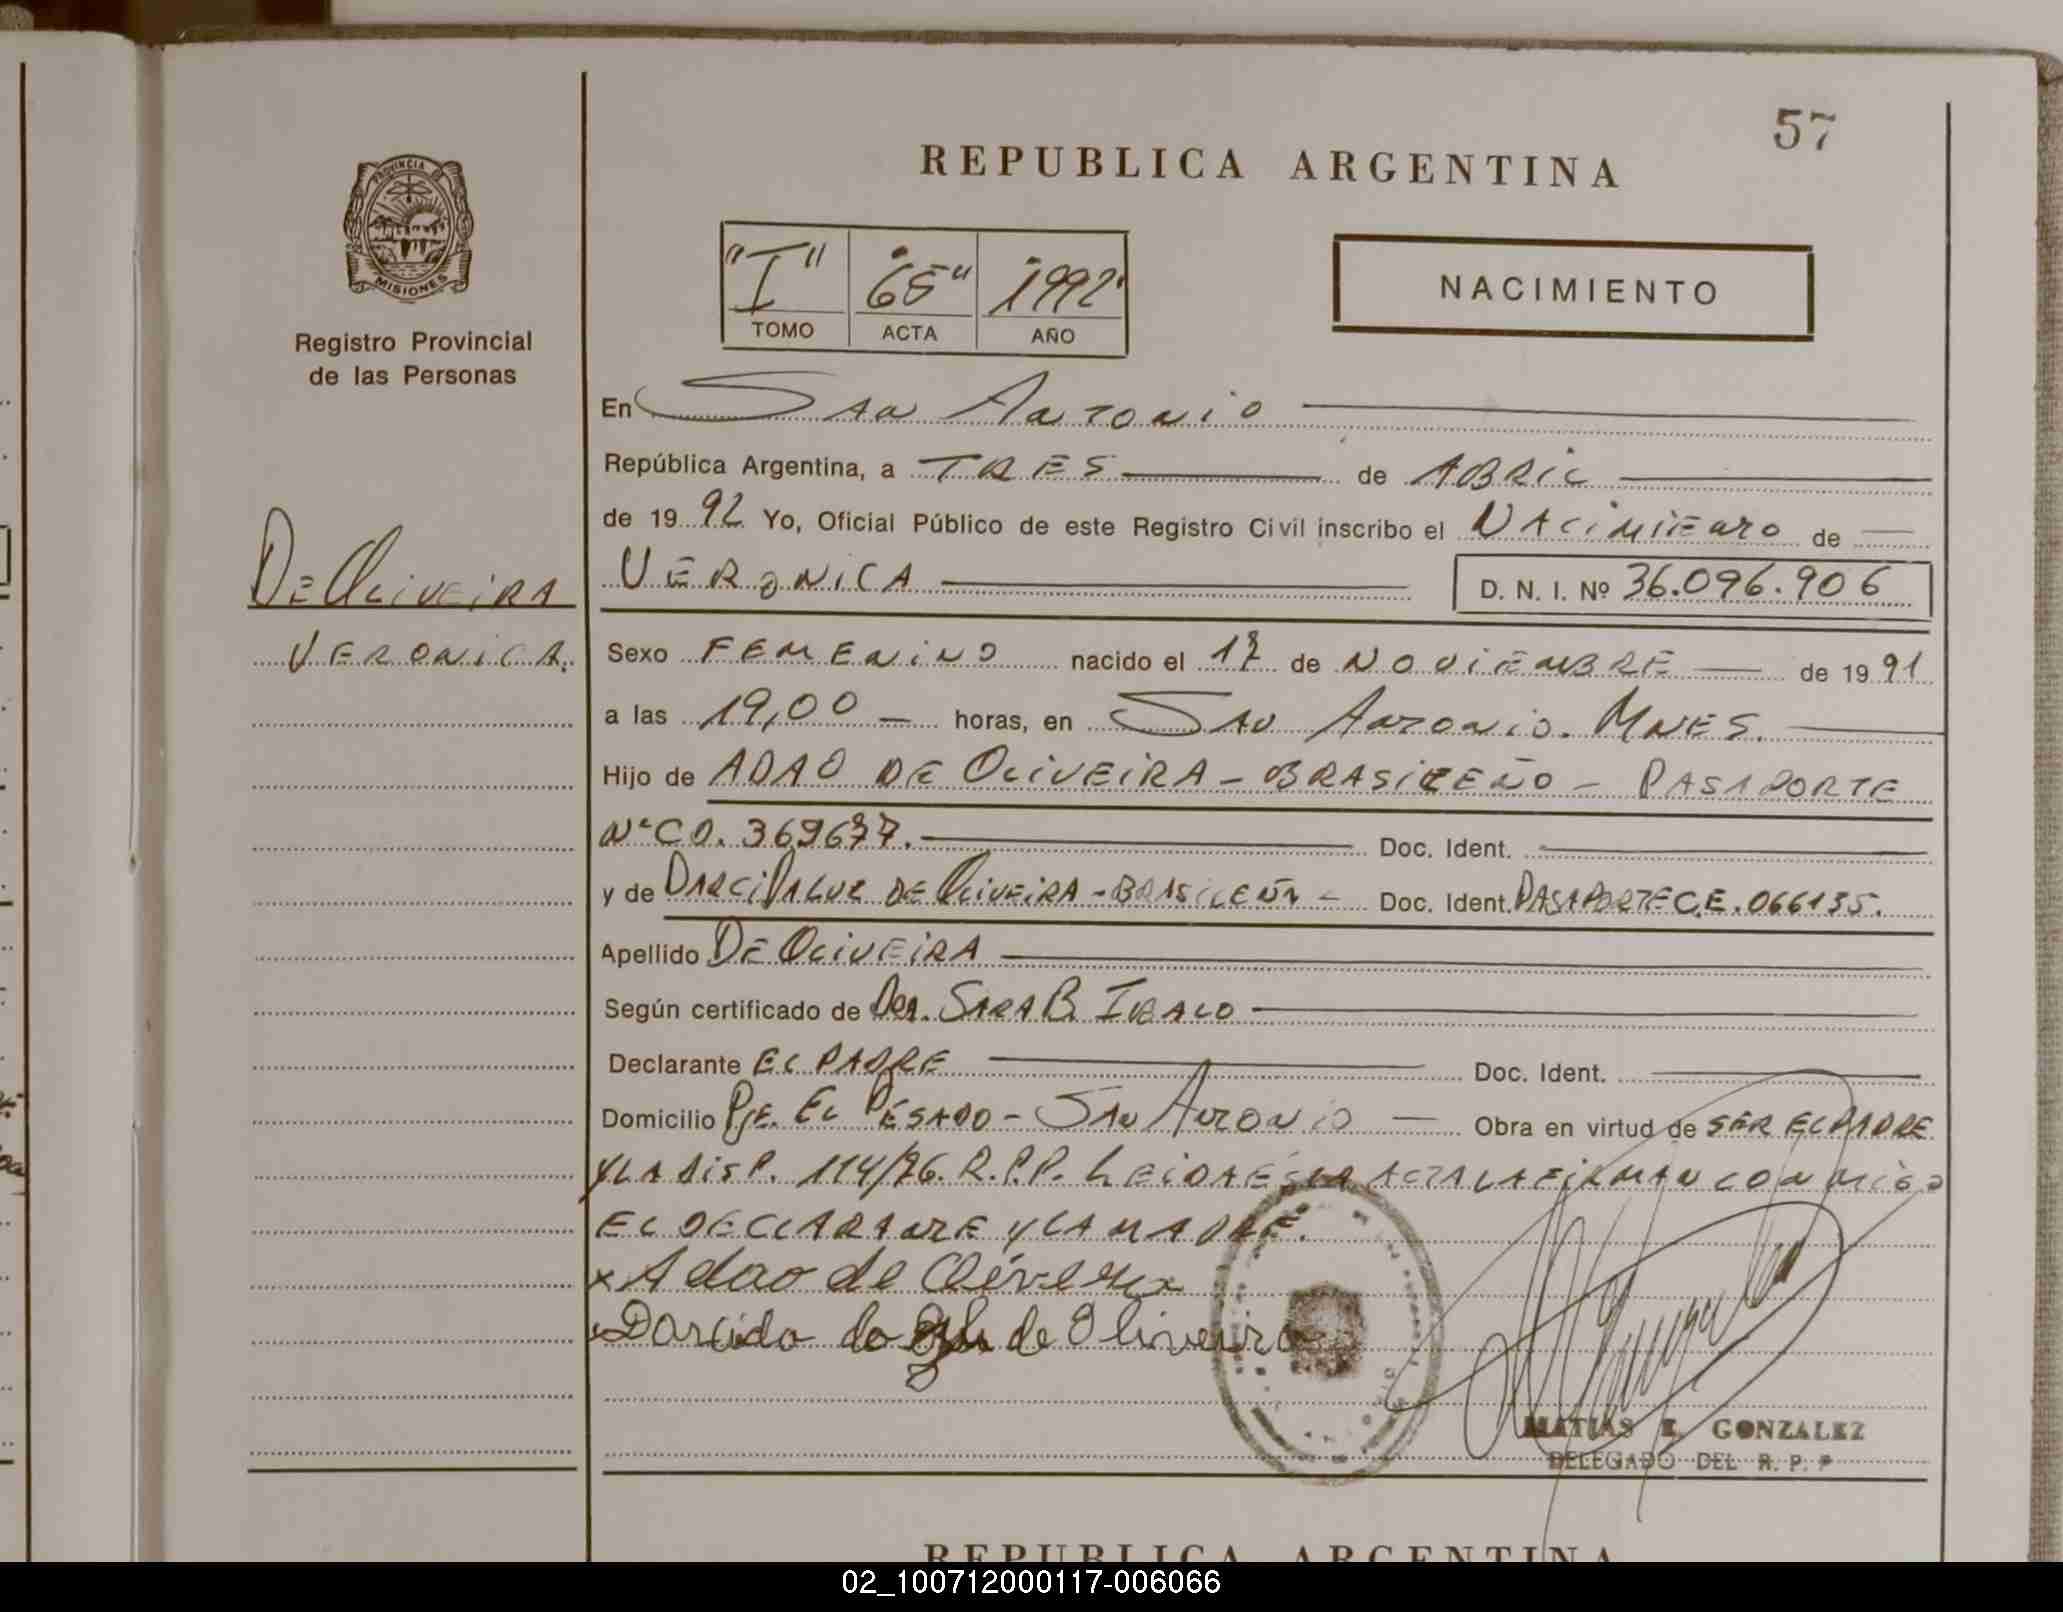 57
REPUBLICA ARGENTINA
PROVINCIA DE
MISIONES
"I" "65" 1992
TOMO ACTA AÑO
NACIMIENTO
Registro Provincial
de las Personas
En San Antonio
República Argentina, a TRES de ABRIL
de 1992 Yo, Oficial Público de este Registro Civil inscribo el NACIMIENTO de
VERONICA D. N. I. Nº 36.096.906
DE OLIVEIRA
VERONICA.
Sexo FEMENINO nacido el 17 de NOVIEMBRE de 1991
a las 19,00 horas, en SAN ANTONIO. MNES.
Hijo de ADAO DE OLIVEIRA - BRASILEÑO - PASAPORTE
Nº CO. 369677. Doc. Ident.
y de DARCI DALUZ DE OLIVEIRA - BRASILEÑA - Doc. Ident. PASAPORTE C.E. 066135.
Apellido DE OLIVEIRA
Según certificado de Dra. SARA B.
Declarante EL PADRE Doc. Ident.
Domicilio Pje. EL PESADO - SAN ANTONIO Obra en virtud de SER EL PADRE
Y LA DISP. 114/76. R.P.P. LEIDA ESTA ACTA LA FIRMAN CONMIGO
EL DECLARANTE Y LA MADRE.
x Adao de Oliveira
x Darcida de Oliveira
MATIAS E. GONZALEZ
DELEGADO DEL R. P. P
REPUBLICA ARGENTINA
02_100712000117-006066